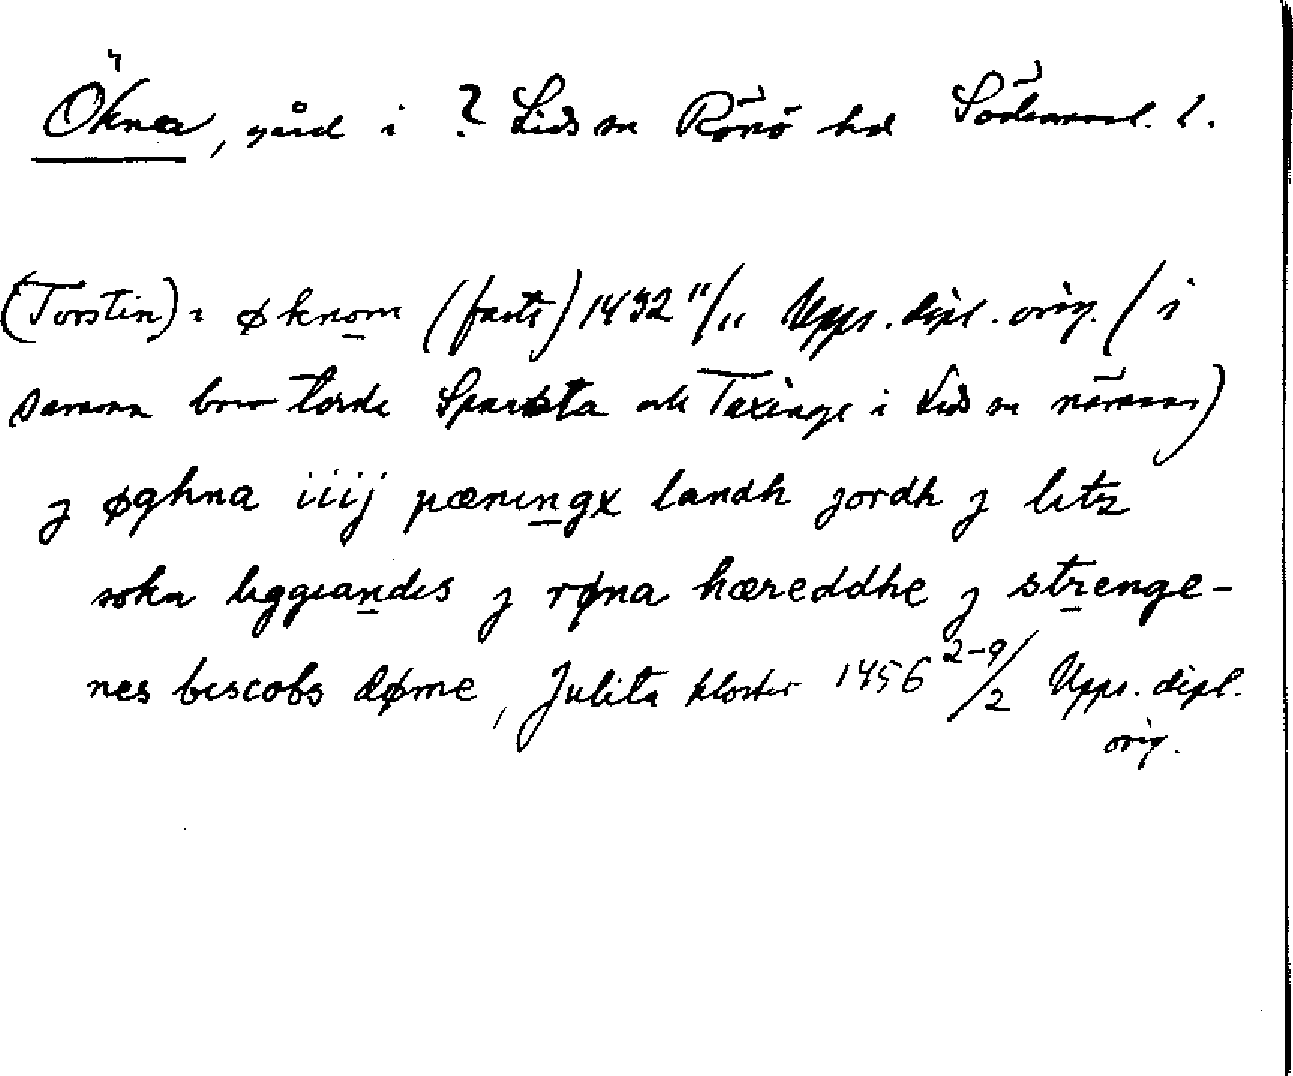 Ökna, gård i ? Lids sn Rönö hd Södermanl. l.
(Torstin) i øknom (faste) 1432 11/11 Upps. dipl. orig. (i
samma brev torde Sparsta och Taxinge i Lids sn nämnas)
j øghna iiij pæningx landh jordh j litz
sokn liggiandis j røna hæreddhe j strenge-
nes biscobs døme, Julita kloster 1456 2-9/2 Upps. dipl.
orig.